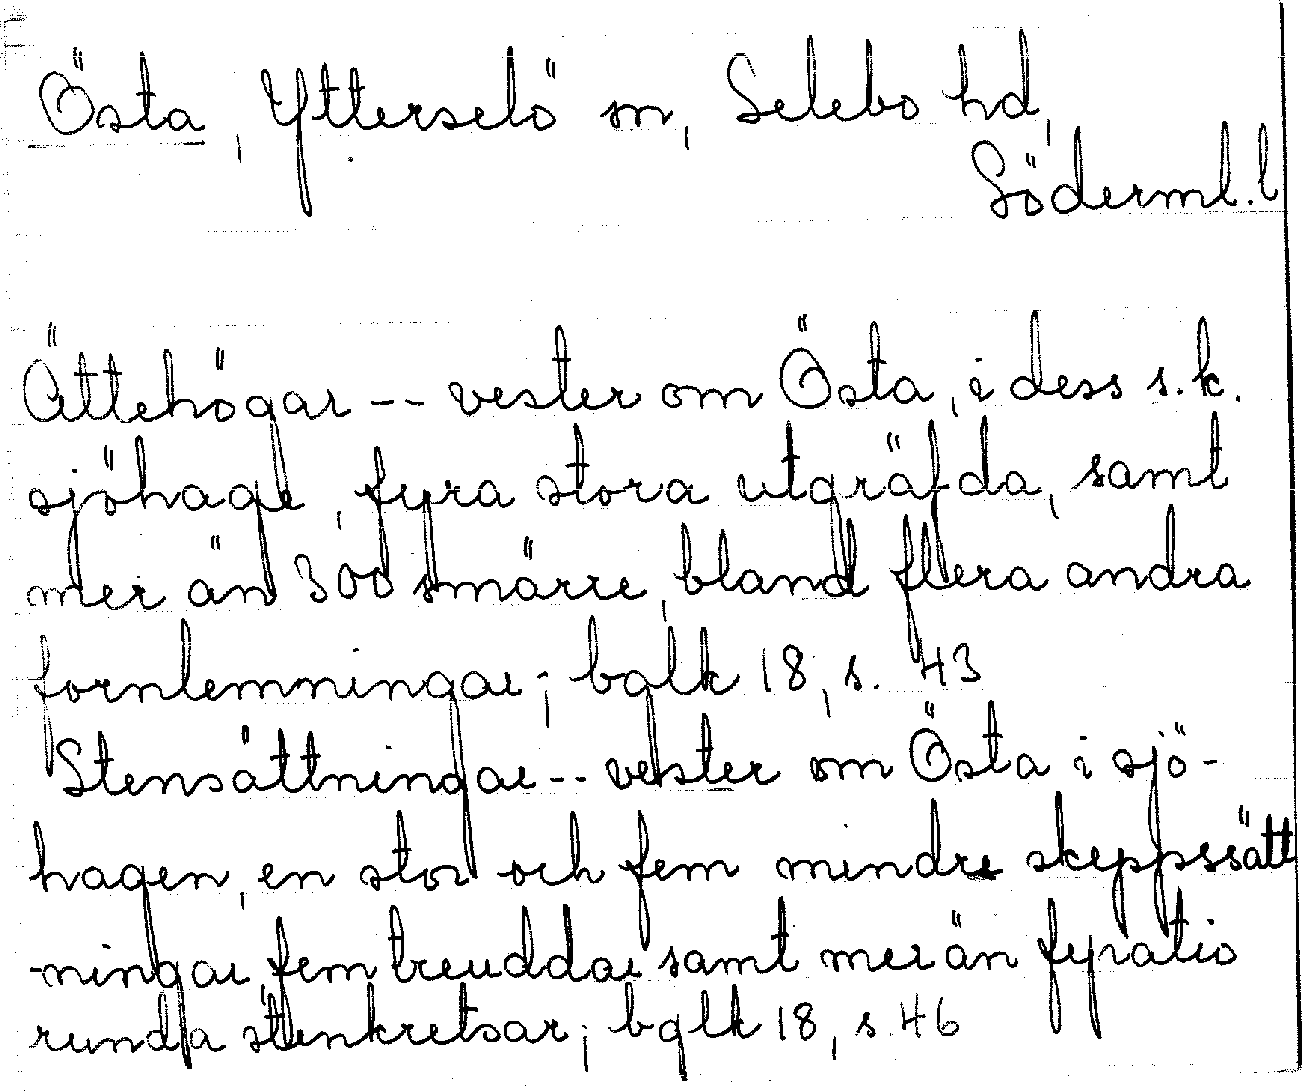 Östa, Ytterselö sn, Selebo hd,
Söderml. l
Ättehögar -- vester om Östa, i dess s.k.
sjöhage, fyra stora utgräfda, samt
mer än 300 smärre, bland flera andra
fornlemningar; bglk 18, s. 43
Stensättningar -- vester om Östa i sjö-
hagen, en stor och fem mindre skeppssätt
-ningar, fem treuddar samt mer än fyratio
runda stenkretsar; bglk 18, s. 46